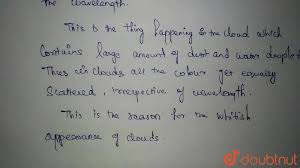 the wavelength.
This is the thing happening in the cloud which
contains large amount of dust and water droplets
Thus in clouds all the colour get equally
scattered, irrespective of wavelength.
This is the reason for the whitish
appearance of clouds.
doubtnut